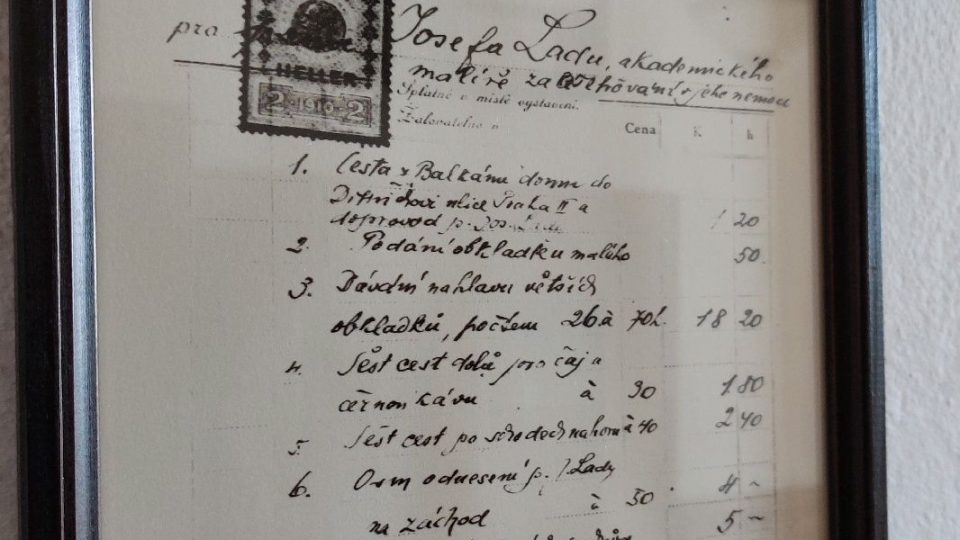 pro
Josefa Ladu, akademického
malíře za ošetřování v jeho nemoci
HELLER
2 -1916- 2
Splatné v místě vystavení.
Žalovatelno v
Cena K h
1. Cesta z Balkánu domu do
Dittrichovi ulice Praha II a
doprovod p. Jos. Lady 1 20
2. Podání obkladku malého 50.
3. Dávání na hlavu větších
obkladků, počtem 26 à 70 h. 18 20
4. Šest cest dolů pro čaj a
černou kávu à 30 1 80
5. Šest cest po schodech nahoru à 40 2 40
6. Osm odnesení p. J. Lady
à 50 4 -
na záchod 5 -